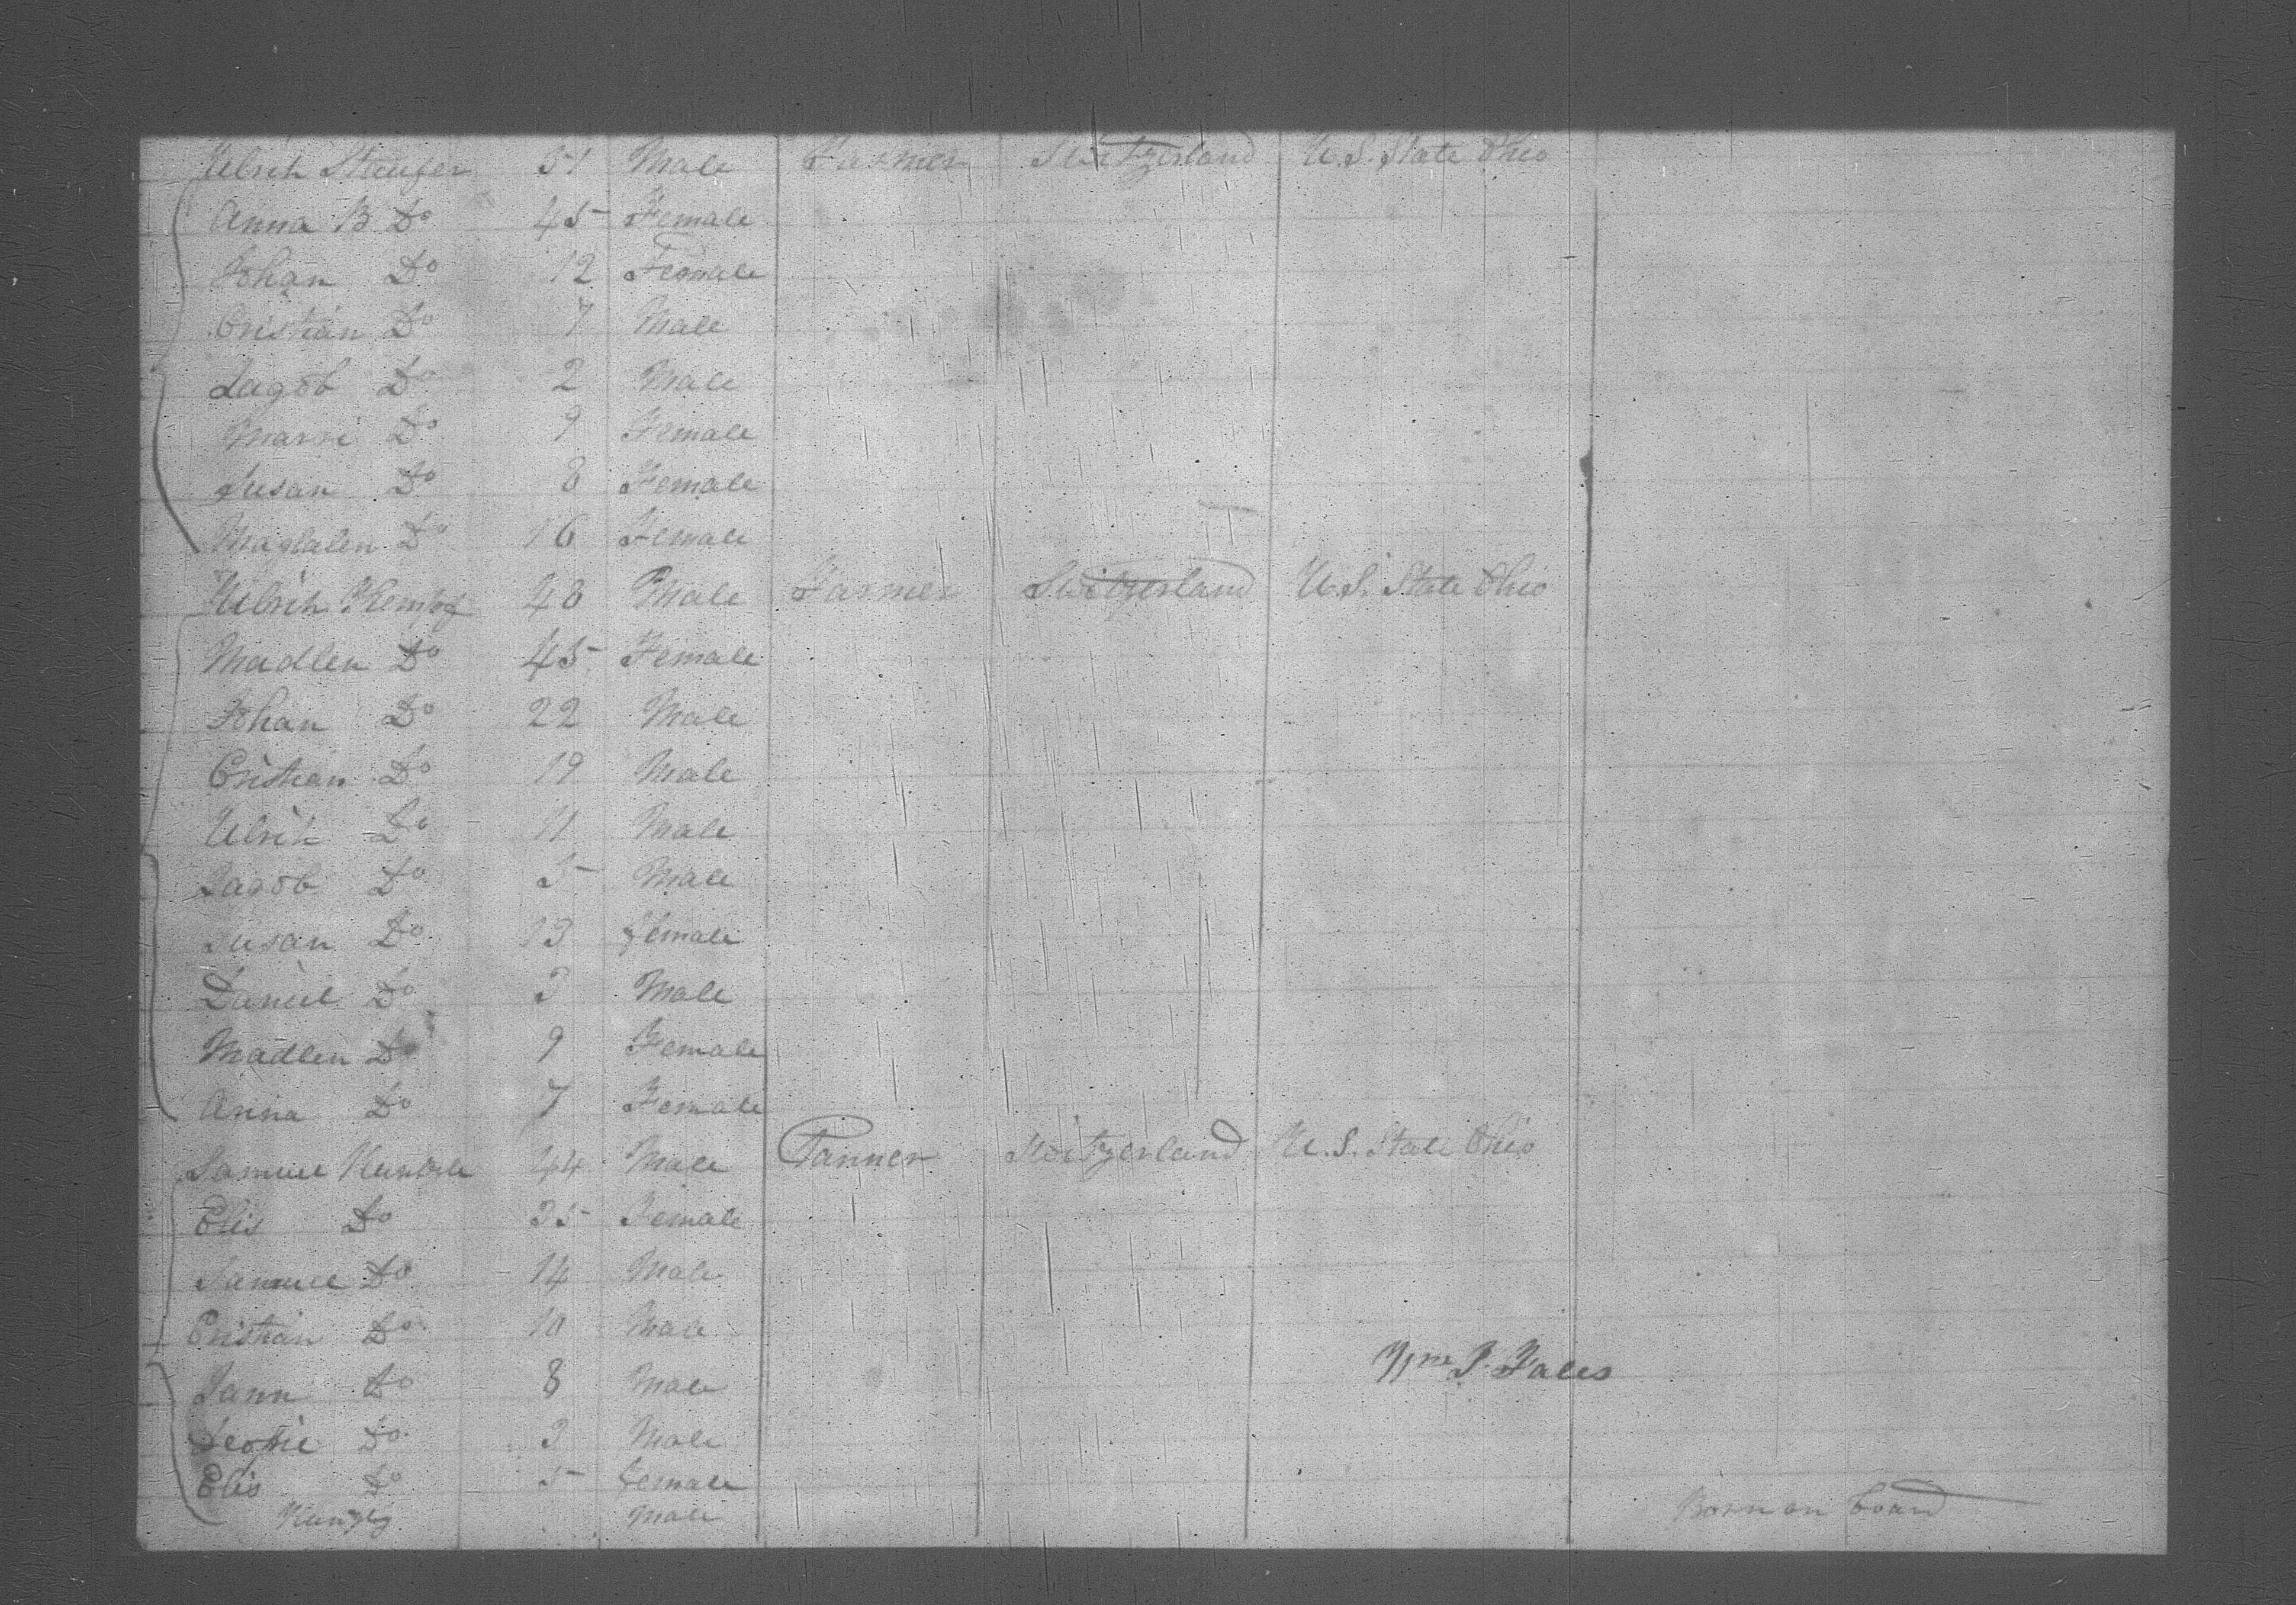 Ulrich Staufer 51 Male Farmer Switzerland U.S. State Ohio
Anna B Do 45 Female
Johan Do 12 Female
Cristian Do 7 Male
Jagob Do 2 Male
Marri Do 9 Female
Susan Do 8 Female
Magdalen Do 16 Female
Ulrich Kempf 48 Male Farmer Switzerland U.S. State Ohio
Madlen Do 45 Female
Johan Do 22 Male
Cristian Do 19 Male
Ulrich Do 11 Male
Jagob Do 5 Male
Susan Do 13 female
Daniel Do 3 Male
Madlen Do 9 Female
Anna Do 7 Female
Samuel 44 Male Tanner Switzerland U.S. State Ohio
Elis Do 35 Female
Samuel Do 14 Male
Cristian Do 10 Male
Jann Do 8 Male
Wm P. Fales
Do 3 Male
Elis Do 5 female
Male Born on board